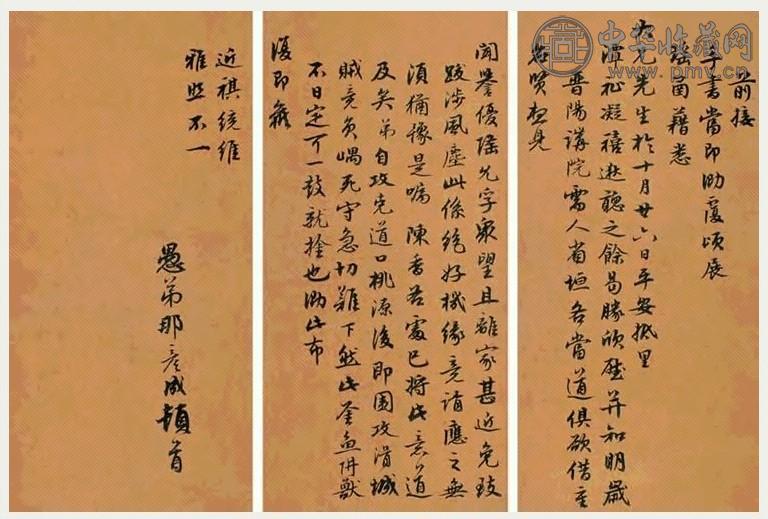 中华收藏网
https://www.pmv.cn/
前接
手書當即泐覆頃展
瑤函藉悉
大兄先生於十月廿六日平安抵里
潭祉凝禧逖聽之餘曷勝欣慰并知明歲
晉陽講院需人省垣各當道俱欲借重
名賢想見
聞譽優隆允孚衆望且離家甚近免致
跋涉風塵此係絕好機緣竟請應之無
須猶豫是囑陳香處已將此意道
及矣弟自攻克道口桃源後即圍攻滑城
賊竟負嵎死守急切難下然此釜魚阱獸
不日定可一鼓就擒也泐此布
復即
近祺統維
雅照不一
愚弟那彥成頓首